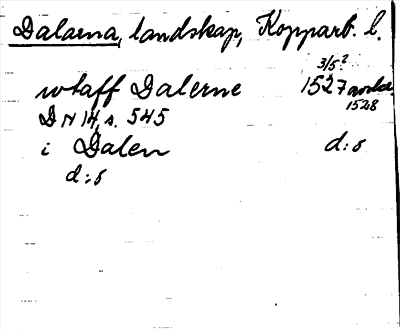 Dalarna, landskap, Kopparb. l.
3/5?
wtaff Dalerne 1527 avskr.
1528
DN 14, s. 545
i Dalen d:o
d:o